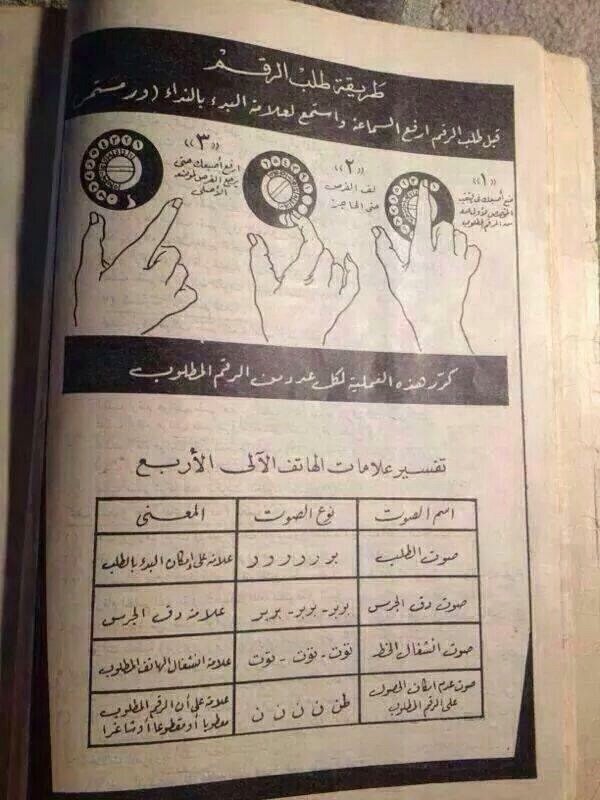 طريقة طلب الرقم
قبل طلب الرقم ارفع السماعة واستمع لعلامة البدء بالنداء (ورر مستمر
«١»
ضع أصبعك في الثقب
المطلوب
«٢»
لف القرص
حتى الحاجز
«٣»
ارفع أصبعك حتى
يرجع القرص لوضعه
الأصلي
كرّر هذه العملية لكل عدد من الرقم المطلوب
تفسير علامات الهاتف الآلى الأربع
اسم الصوت نوع الصوت المعنى
صوت الطلب بر ر ر ر ر علامة على إمكان البدء بالطلب
صوت دق الجرس بربر - بربر - بربر علامة دق الجرس
صوت انشغال الخط توت - توت - توت علامة انشغال الهاتف المطلوب
صوت عدم امكان الحصول
على الرقم المطلوب
طن ن ن ن ن
علامة على أن الرقم المطلوب
معطوبا أو مقطوعا أو شاغرا